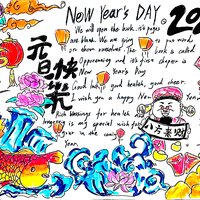 New Year's DAY
20
We will open the book. it's pages
are blank. We are going to put words
on them ourselves. The book is called
Opportunity and it's first chapter is
New Year's Day
Good luck, good health, good cheer.
I wish you a happy New Year.
Rich blessings for health
longevity is my special wish for
you in the coming
Year.
元旦快乐
八方来财